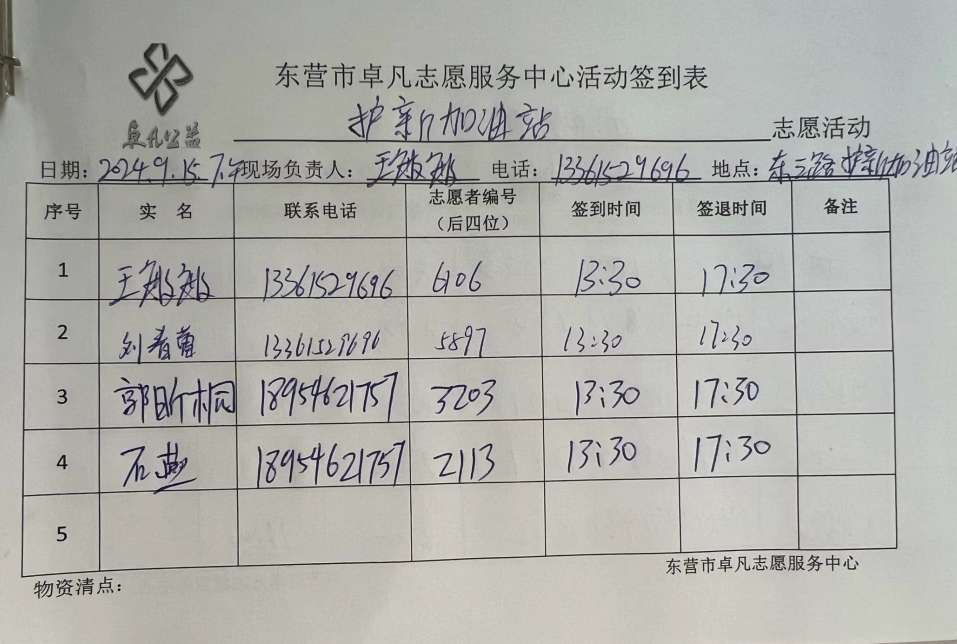 东营市卓凡志愿服务中心活动签到表
卓凡公益
护新加油站 志愿活动
日期：2024.9.15.下午 现场负责人：王敏敏 电话：13361529696 地点：东三路护新加油站
序号 实 名 联系电话 志愿者编号（后四位） 签到时间 签退时间 备注
1 王敏敏 13361529696 6106 13:30 17:30
2 刘春曹 13361529696 5897 13:30 17:30
3 郭昕桐 18954621757 3203 13:30 17:30
4 石燕 18954621757 2113 13:30 17:30
5
东营市卓凡志愿服务中心
物资清点：